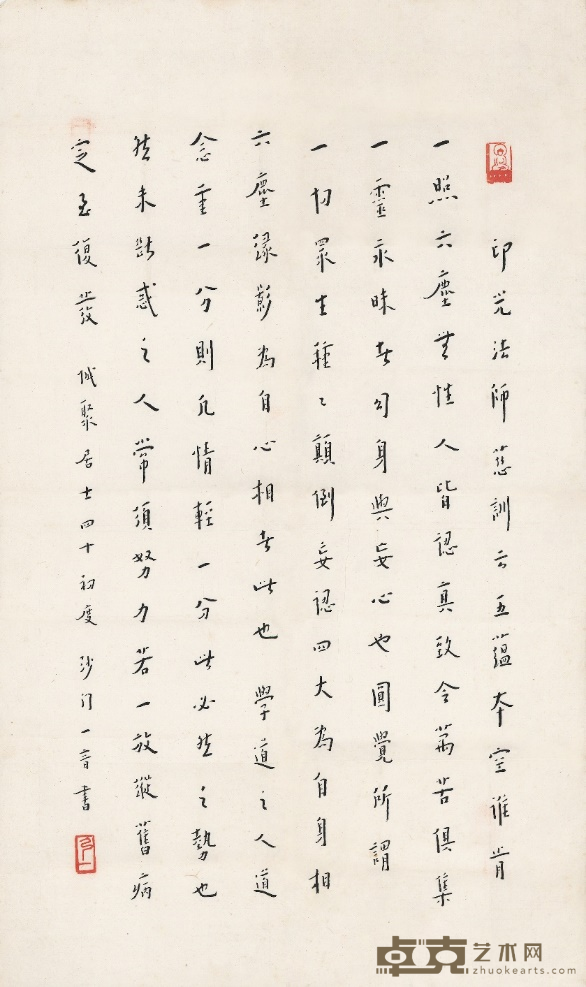 印光法師慈訓云五蘊本空誰肯
一照六塵無性人皆認真致令萬苦俱集
一靈永昧者勾身與妄心也圓覺所謂
一切眾生種〻顛倒妄認四大為自身相
六塵緣影為自心相者此也 學道之人道
念重一分則凡情輕一分此必然之勢也
然未斷惑之人常須努力若一放縱舊病
定至復發 城聚居士四十初度 沙門一音書
卓克艺术网
zhuokearts.com